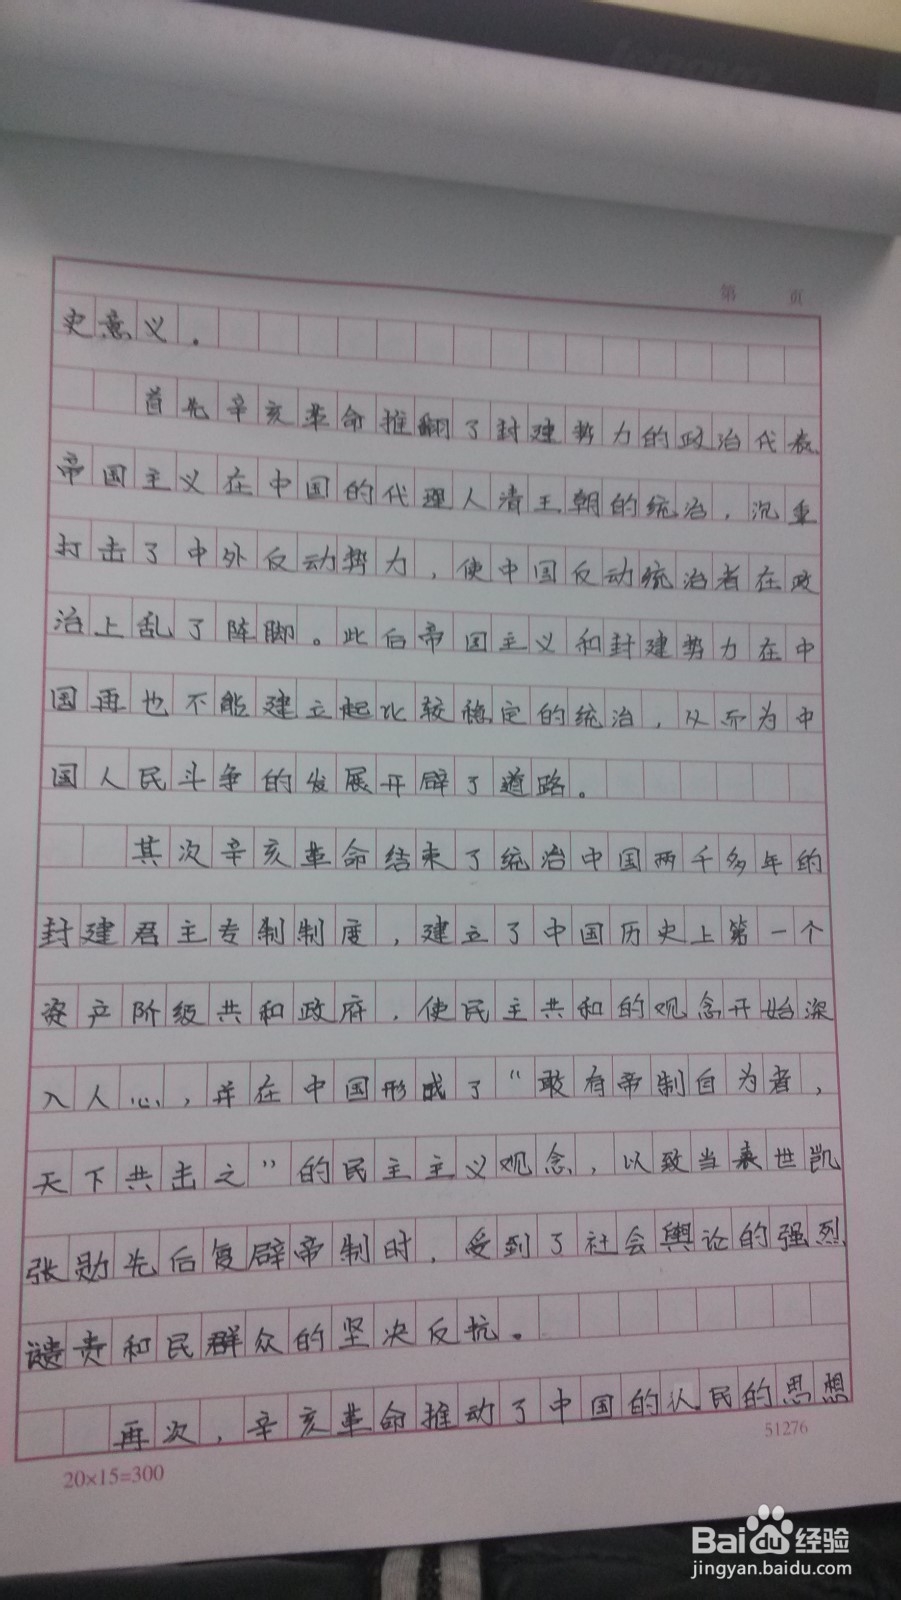 lenovo
第 页
史意义.
首先辛亥革命推翻了封建势力的政治代表
帝国主义在中国的代理人清王朝的统治,沉重
打击了中外反动势力,使中国反动统治者在政
治上乱了阵脚。此后帝国主义和封建势力在中
国再也不能建立起比较稳定的统治,从而为中
国人民斗争的发展开辟了道路。
其次辛亥革命结束了统治中国两千多年的
封建君主专制制度,建立了中国历史上第一个
资产阶级共和政府,使民主共和的观念开始深
入人心,并在中国形成了“敢有帝制自为者,
天下共击之”的民主主义观念,以致当袁世凯
张勋先后复辟帝制时,受到了社会舆论的强烈
谴责和民群众的坚决反抗。
再次,辛亥革命推动了中国的人民的思想
51276
20×15=300
Baidu经验
jingyan.baidu.com